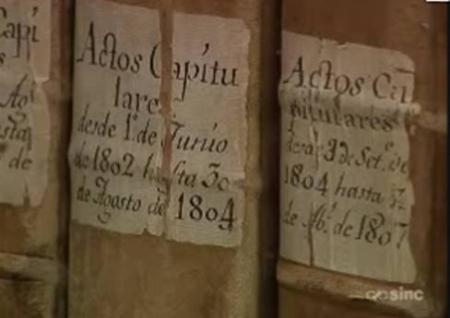 Capi
Ao
de
Actos Capitu
lares
desde 1º de Junio
de 1802 hasta 30
de Agosto de 1804
Actos Ca
pitulares
desde 3 de Set.e de
1804 hasta
de Ab.l de 1807
sinc